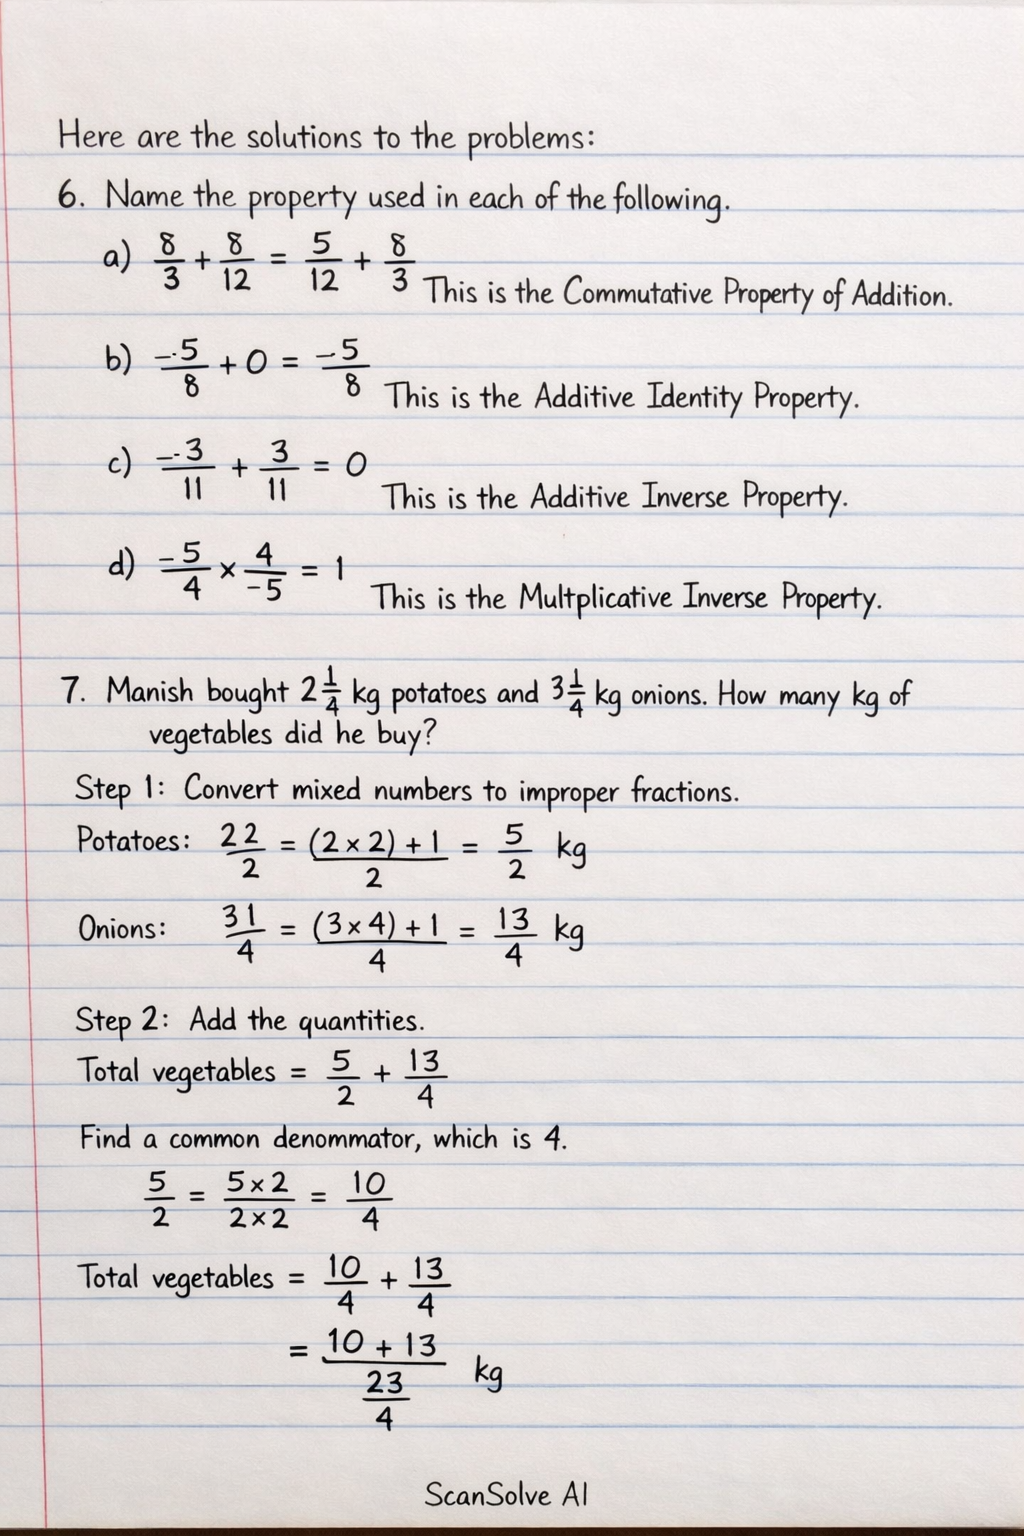 Here are the solutions to the problems:
6. Name the property used in each of the following.
a) 8/3 + 8/12 = 5/12 + 8/3 This is the Commutative Property of Addition.
b) -.5/8 + 0 = -5/8 This is the Additive Identity Property.
c) -.3/11 + 3/11 = 0 This is the Additive Inverse Property.
d) -5/4 × 4/-5 = 1 This is the Multplicative Inverse Property.
7. Manish bought 2 1/4 kg potatoes and 3 1/4 kg onions. How many kg of
vegetables did he buy?
Step 1: Convert mixed numbers to improper fractions.
Potatoes: 22/2 = (2 × 2) + 1/2 = 5/2 kg
Onions: 31/4 = (3 × 4) + 1/4 = 13/4 kg
Step 2: Add the quantities.
Total vegetables = 5/2 + 13/4
Find a common denommator, which is 4.
5/2 = 5×2/2×2 = 10/4
Total vegetables = 10/4 + 13/4
= 10 + 13/23/4 kg
ScanSolve AI